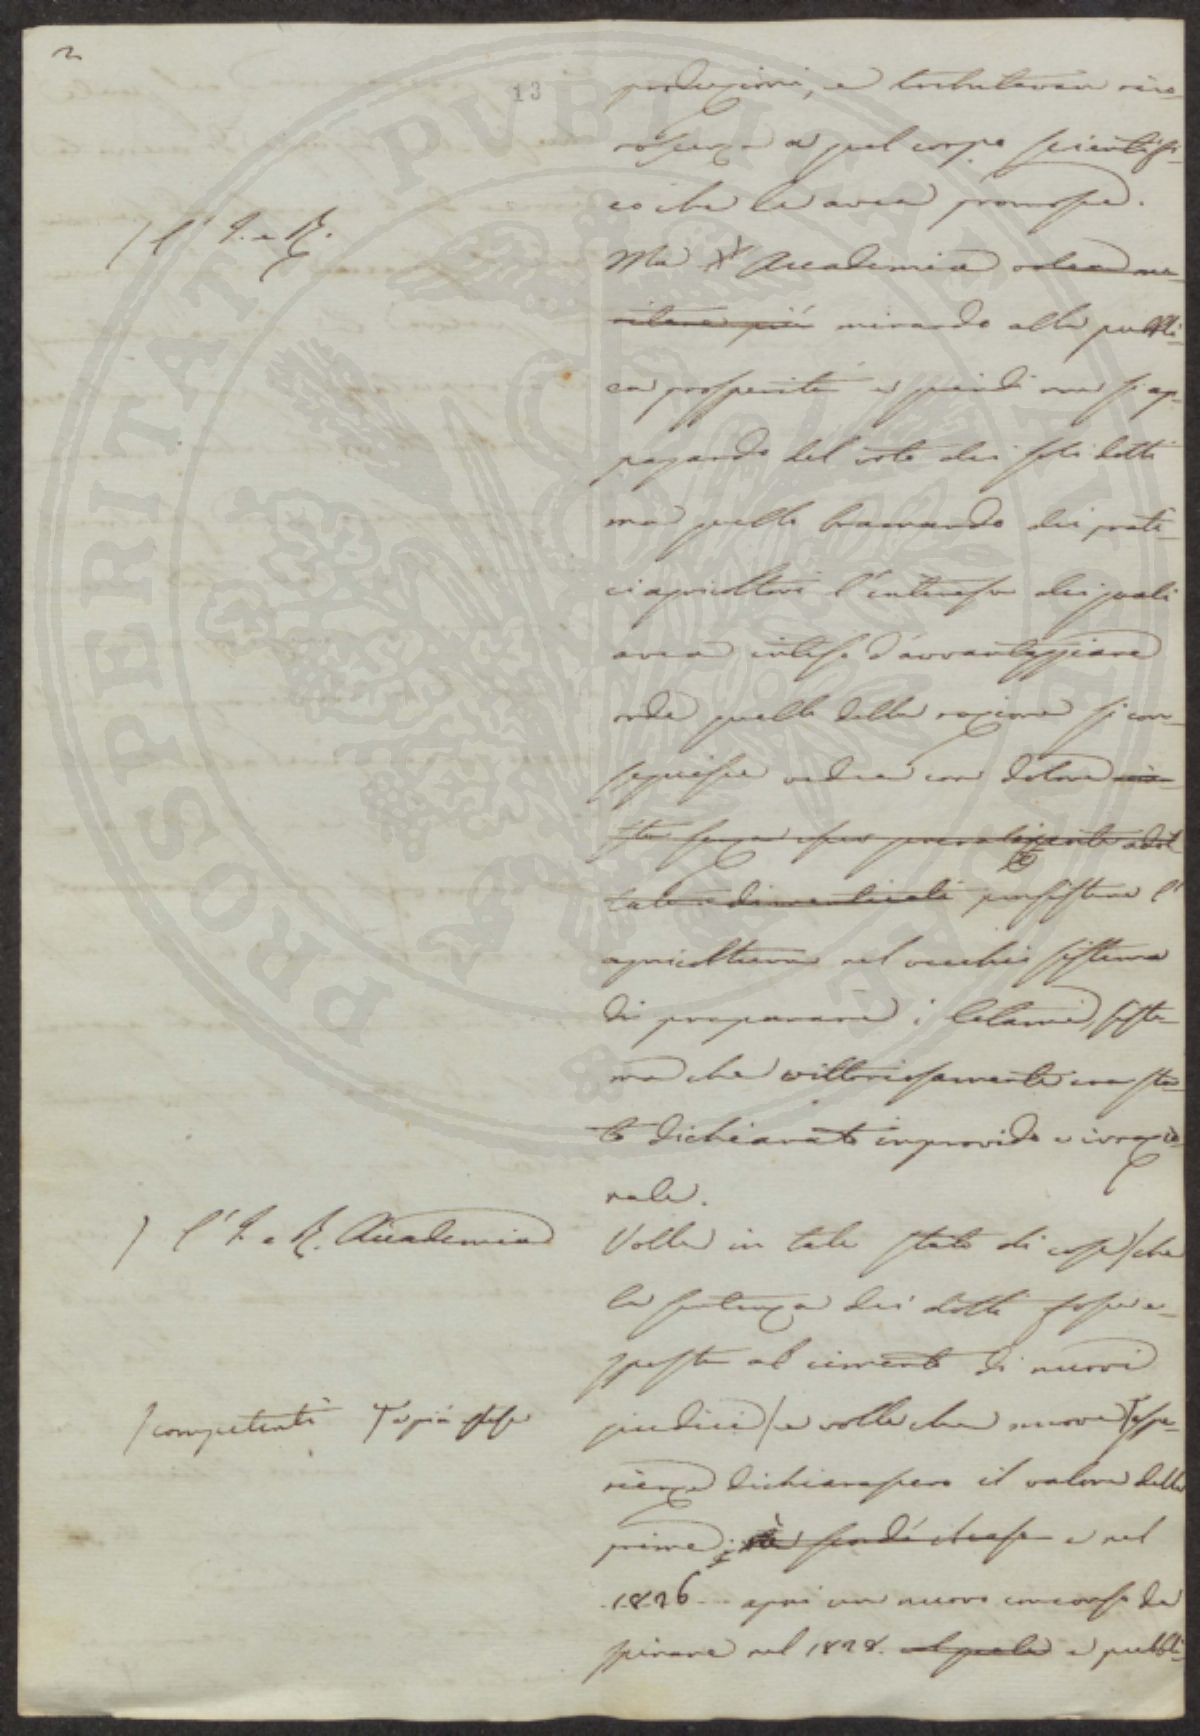 2
13
produzioni, e tributavan rico-
noscenza a quel corpo scientifi-
co che le avea promosse.
/ l'I. e R.
Ma l' Accademia volea me-
ritare più mirando alla pubbli-
ca prosperità e quindi non si ap-
pagando del voto dei soli dotti
ma quello bramando dei prati-
ci agricoltori l'interesse dei quali
avea inteso d'avvantaggiare
onde quello della nazione si con-
seguisse vedea con dolore
persistere l'
agricoltura nel vecchio sistema
di preparare i letami, siste-
ma che vittoriosamente era sta-
to dichiarato improvido e irrazio-
nale.
/ l'I. e R. Accademia
Volle in tale stato di cose / che
la sentenza dei dotti fosse e-
sposta al cimento di nuovi
/ competenti e più stese
giudici / e volle che nuove espe-
rienze dichiarassero il valore delle
prime; e nel
1826 aprì un nuovo concorso da
spirare nel 1828. e pubbli-
PROSPERITATI PUBLICAE